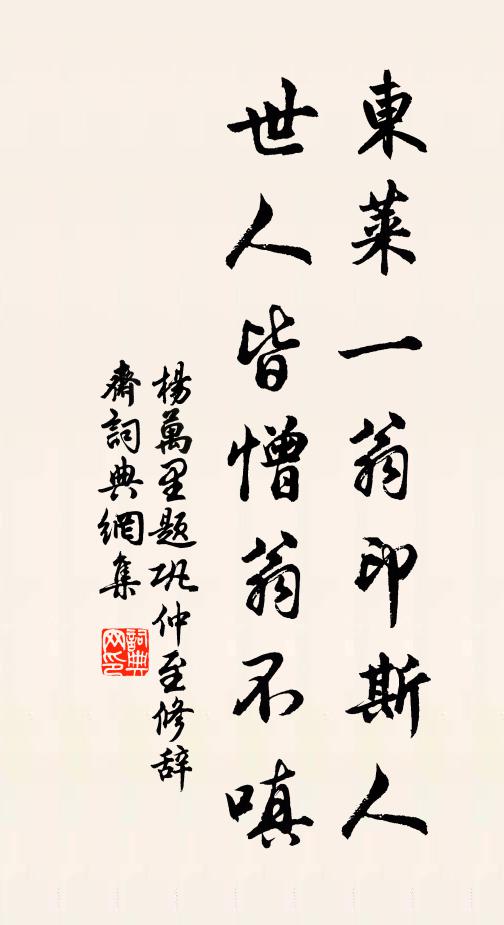 東萊一翁印斯人
世人皆憎翁不嗔
楊萬里題巩仲至修辞
齋詞典網集
詞典网印